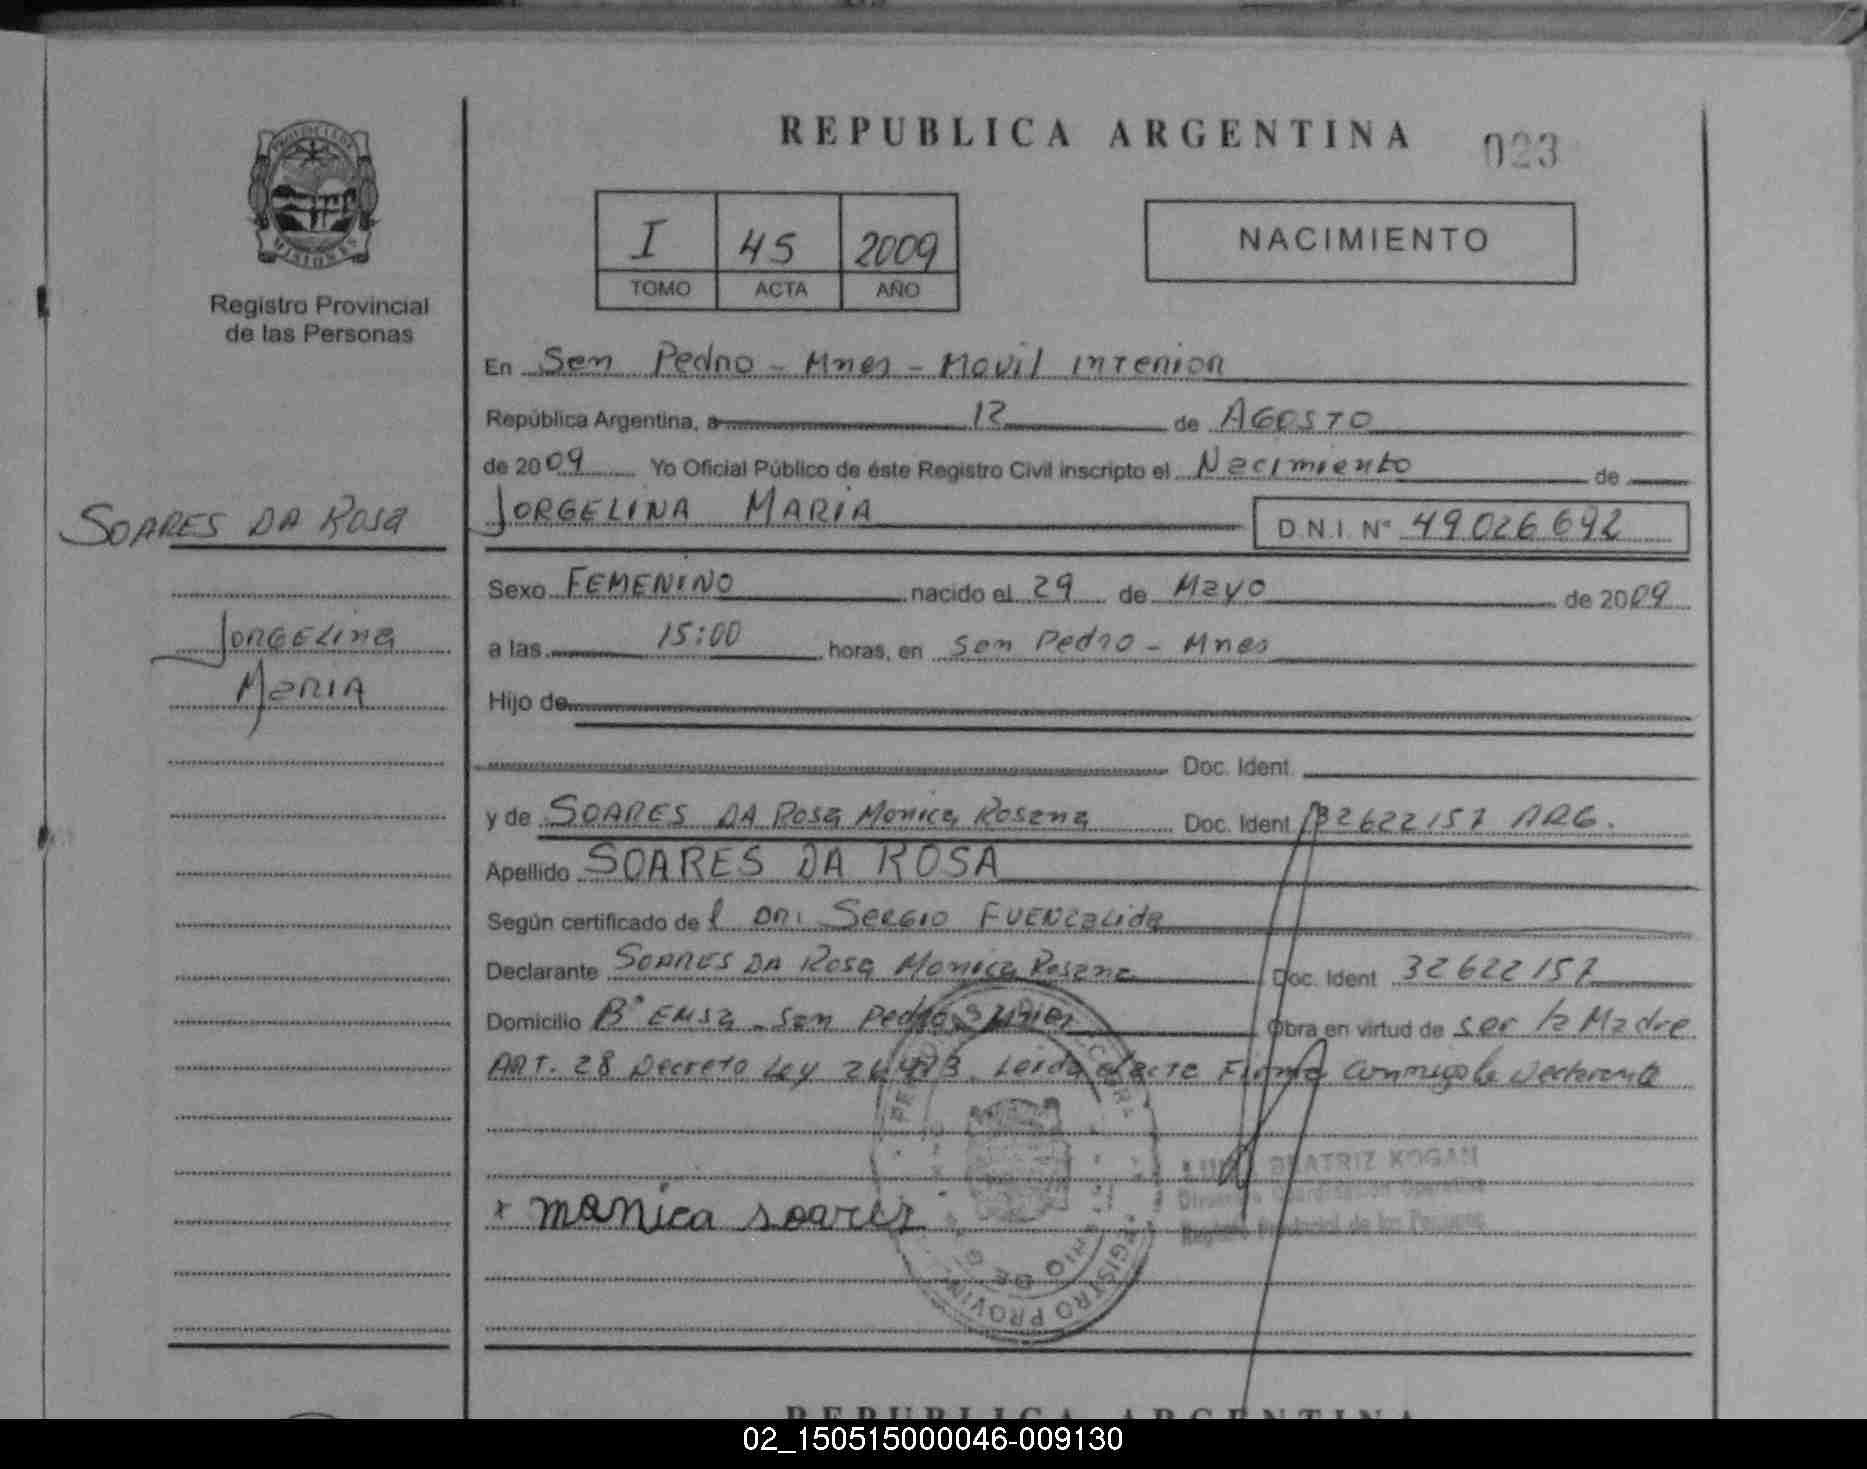 REPUBLICA ARGENTINA
023
PROVINCIA DE
MISIONES
Registro Provincial
de las Personas
I 45 2009
TOMO ACTA AÑO
NACIMIENTO
En San Pedro - Mnes - Movil Interior
República Argentina, a 12 de AGOSTO
de 2009 Yo Oficial Público de éste Registro Civil inscripto el Nacimiento de
SOARES DA Rosa
JORGELINA MARIA D.N.I. N° 49026692
Sexo FEMENINO nacido el 29 de Mayo de 2009
JORGELina
MaRIA
a las 15:00 horas, en San Pedro - Mnes
Hijo de
Doc. Ident.
y de SOARES DA Rosa Monica Rosana Doc. Ident 32622157 ARG.
Apellido SOARES DA ROSA
Según certificado de l DR: SERGIO FUENZALida
Declarante SOARES DA Rosa Monica Rosana Doc. Ident 32622157
Domicilio B° EMSa San Pedro Mnes Obra en virtud de ser la Madre
ART. 28 Decreto Ley Leida el acta Firma conmigo la declarante
BEATRIZ KOGAN
Registro Provincial de las Personas
x monica soares
REGISTRO PROVIN
REPUBLICA ARGENTINA
02_150515000046-009130